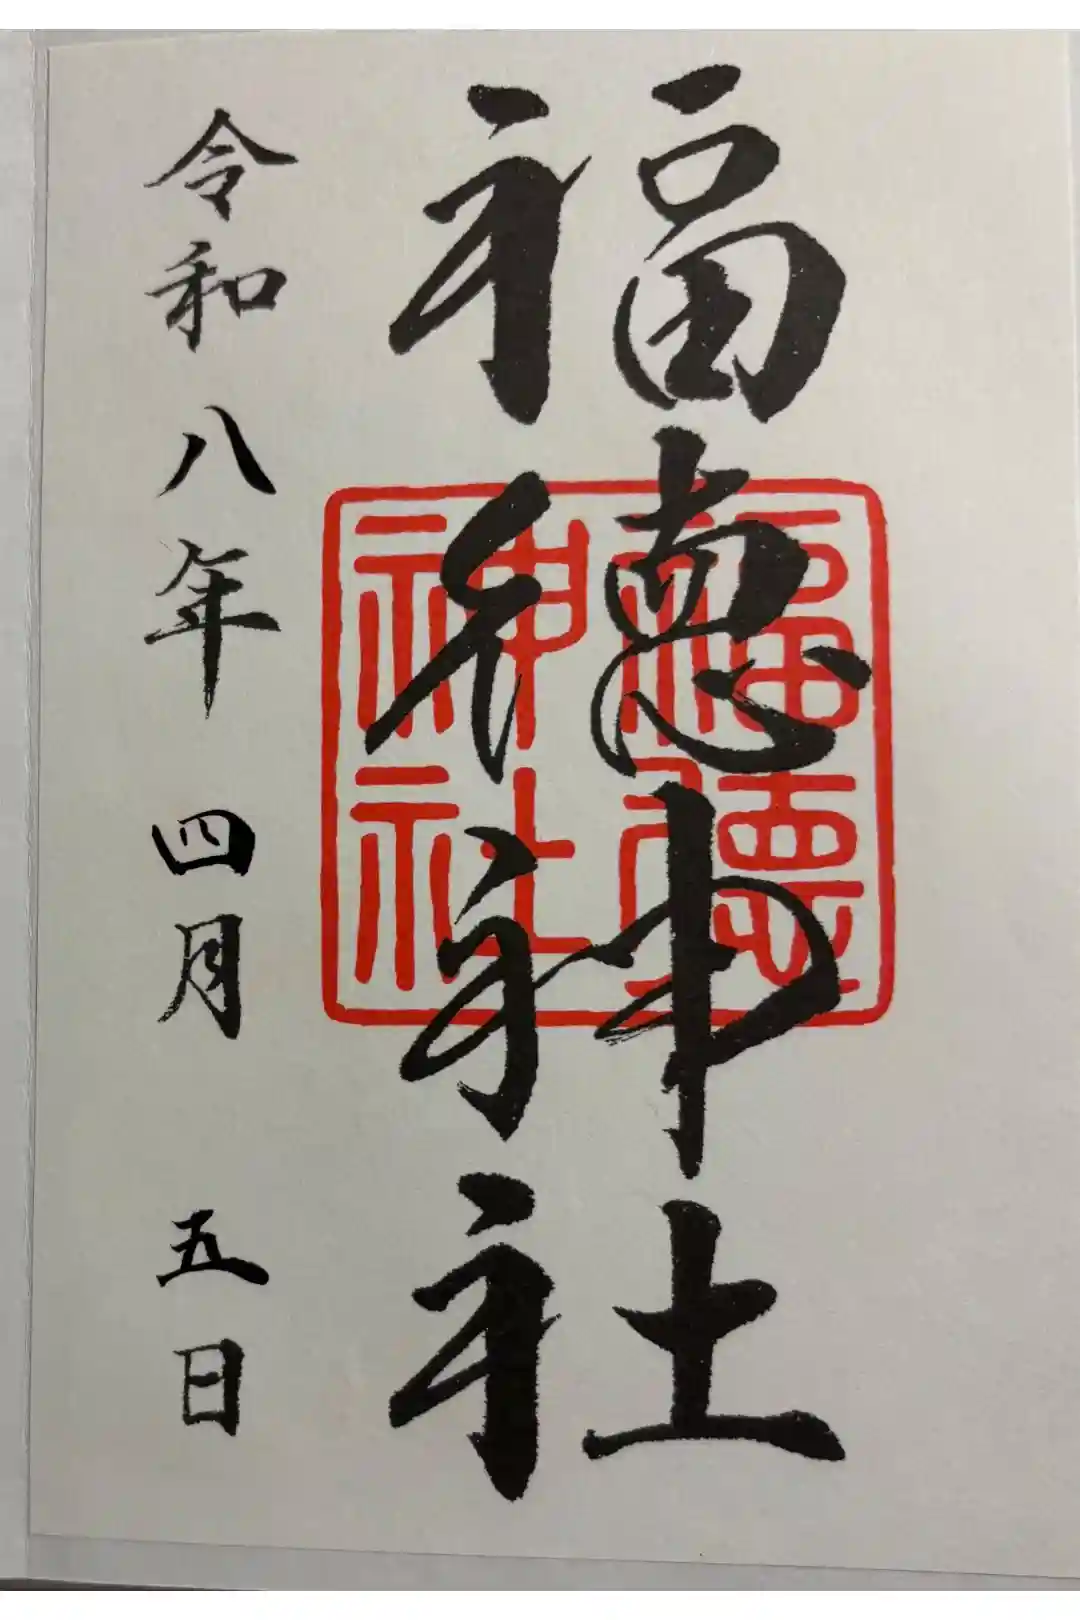 福徳神社
福徳
神社
令和八年 四月 五日